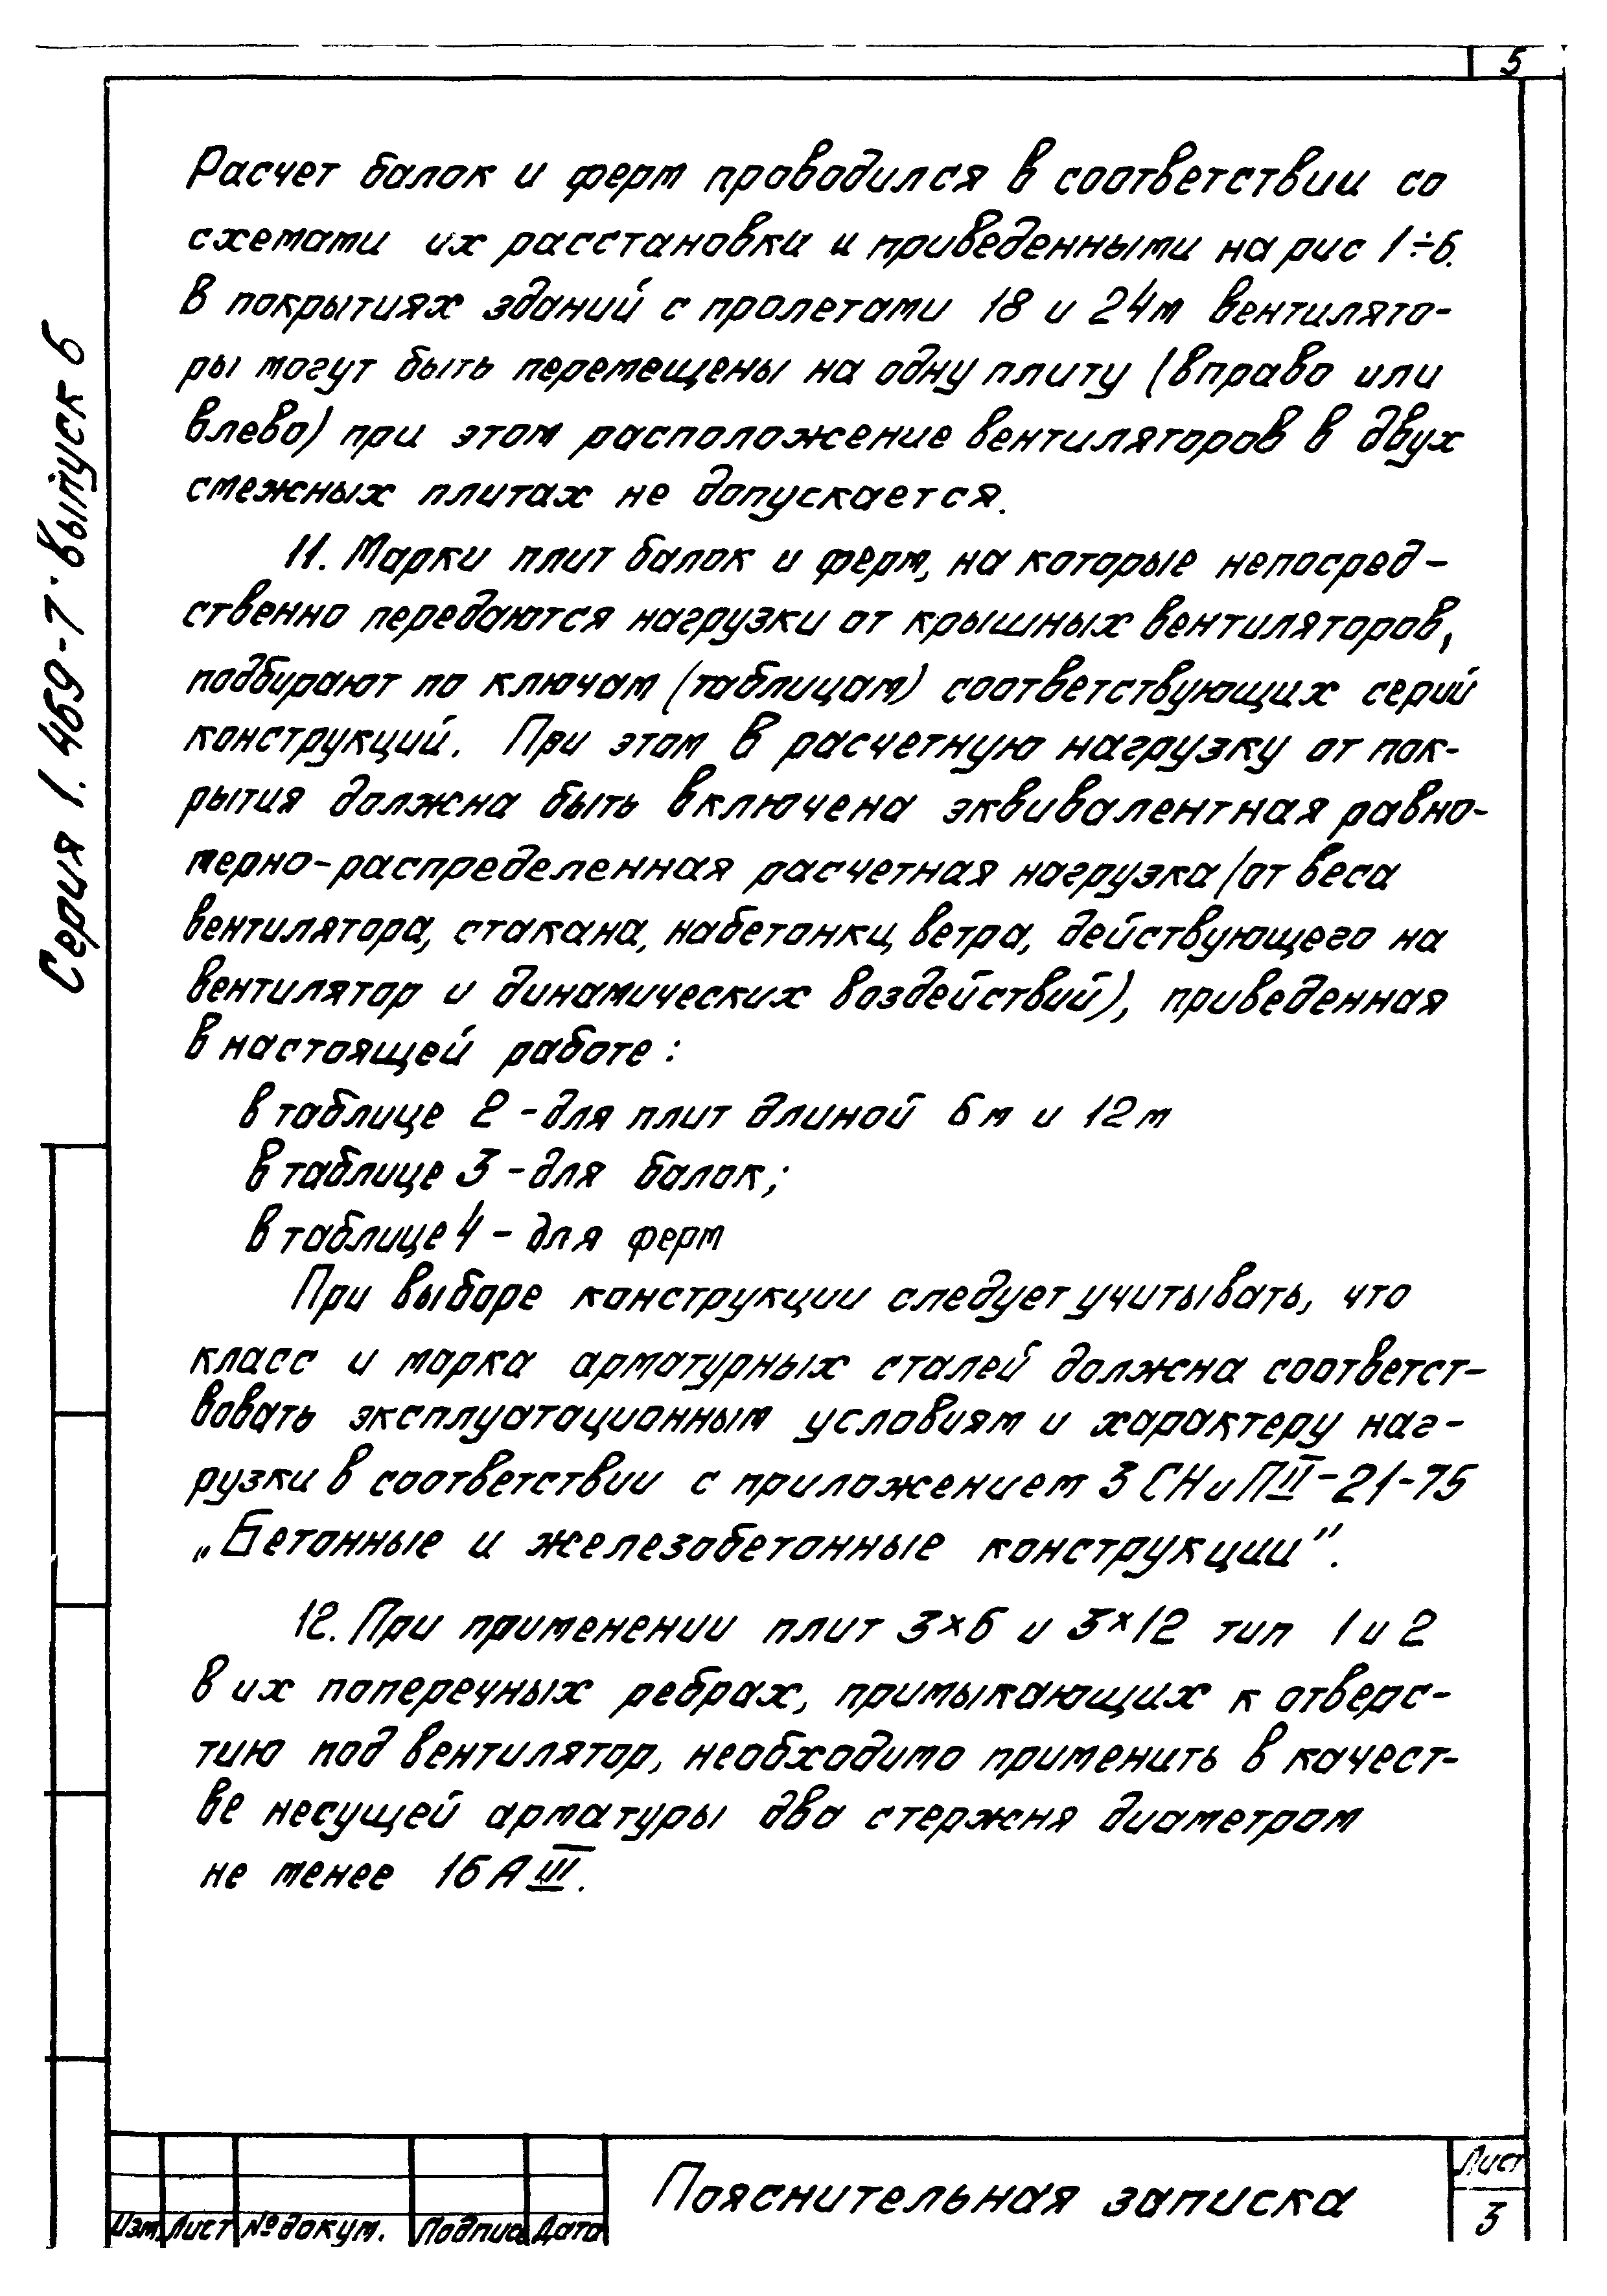 5
Расчет балок и ферм проводился в соответствии со
схемами их расстановки и приведенными на рис 1÷6.
В покрытиях зданий с пролетами 18 и 24м вентилято-
ры могут быть перемещены на одну плиту (вправо или
влево) при этом расположение вентиляторов в двух
смежных плитах не допускается.
11. Марки плит балок и ферм, на которые непосред-
ственно передаются нагрузки от крышных вентиляторов,
подбирают по ключам (таблицам) соответствующих серий
конструкций. При этом в расчетную нагрузку от пок-
рытия должна быть включена эквивалентная равно-
мерно-распределенная расчетная нагрузка (от веса
вентилятора, стакана, набетонки, ветра, действующего на
вентилятор и динамических воздействий), приведенная
в настоящей работе:
в таблице 2 - для плит длиной 6м и 12м
в таблице 3 - для балок;
в таблице 4 - для ферм
При выборе конструкции следует учитывать, что
класс и марка арматурных сталей должна соответст-
вовать эксплуатационным условиям и характеру наг-
рузки в соответствии с приложением 3 СНиП II-21-75
„Бетонные и железобетонные конструкции".
12. При применении плит 3×6 и 3×12 тип 1 и 2
в их поперечных ребрах, примыкающих к отверс-
тию под вентилятор, необходимо применить в качест-
ве несущей арматуры два стержня диаметром
не менее 16 А III.
Серия 1.469-7 Выпуск 6
Изм. Лист № докум. Подпис Дата
Пояснительная записка
Лист
3